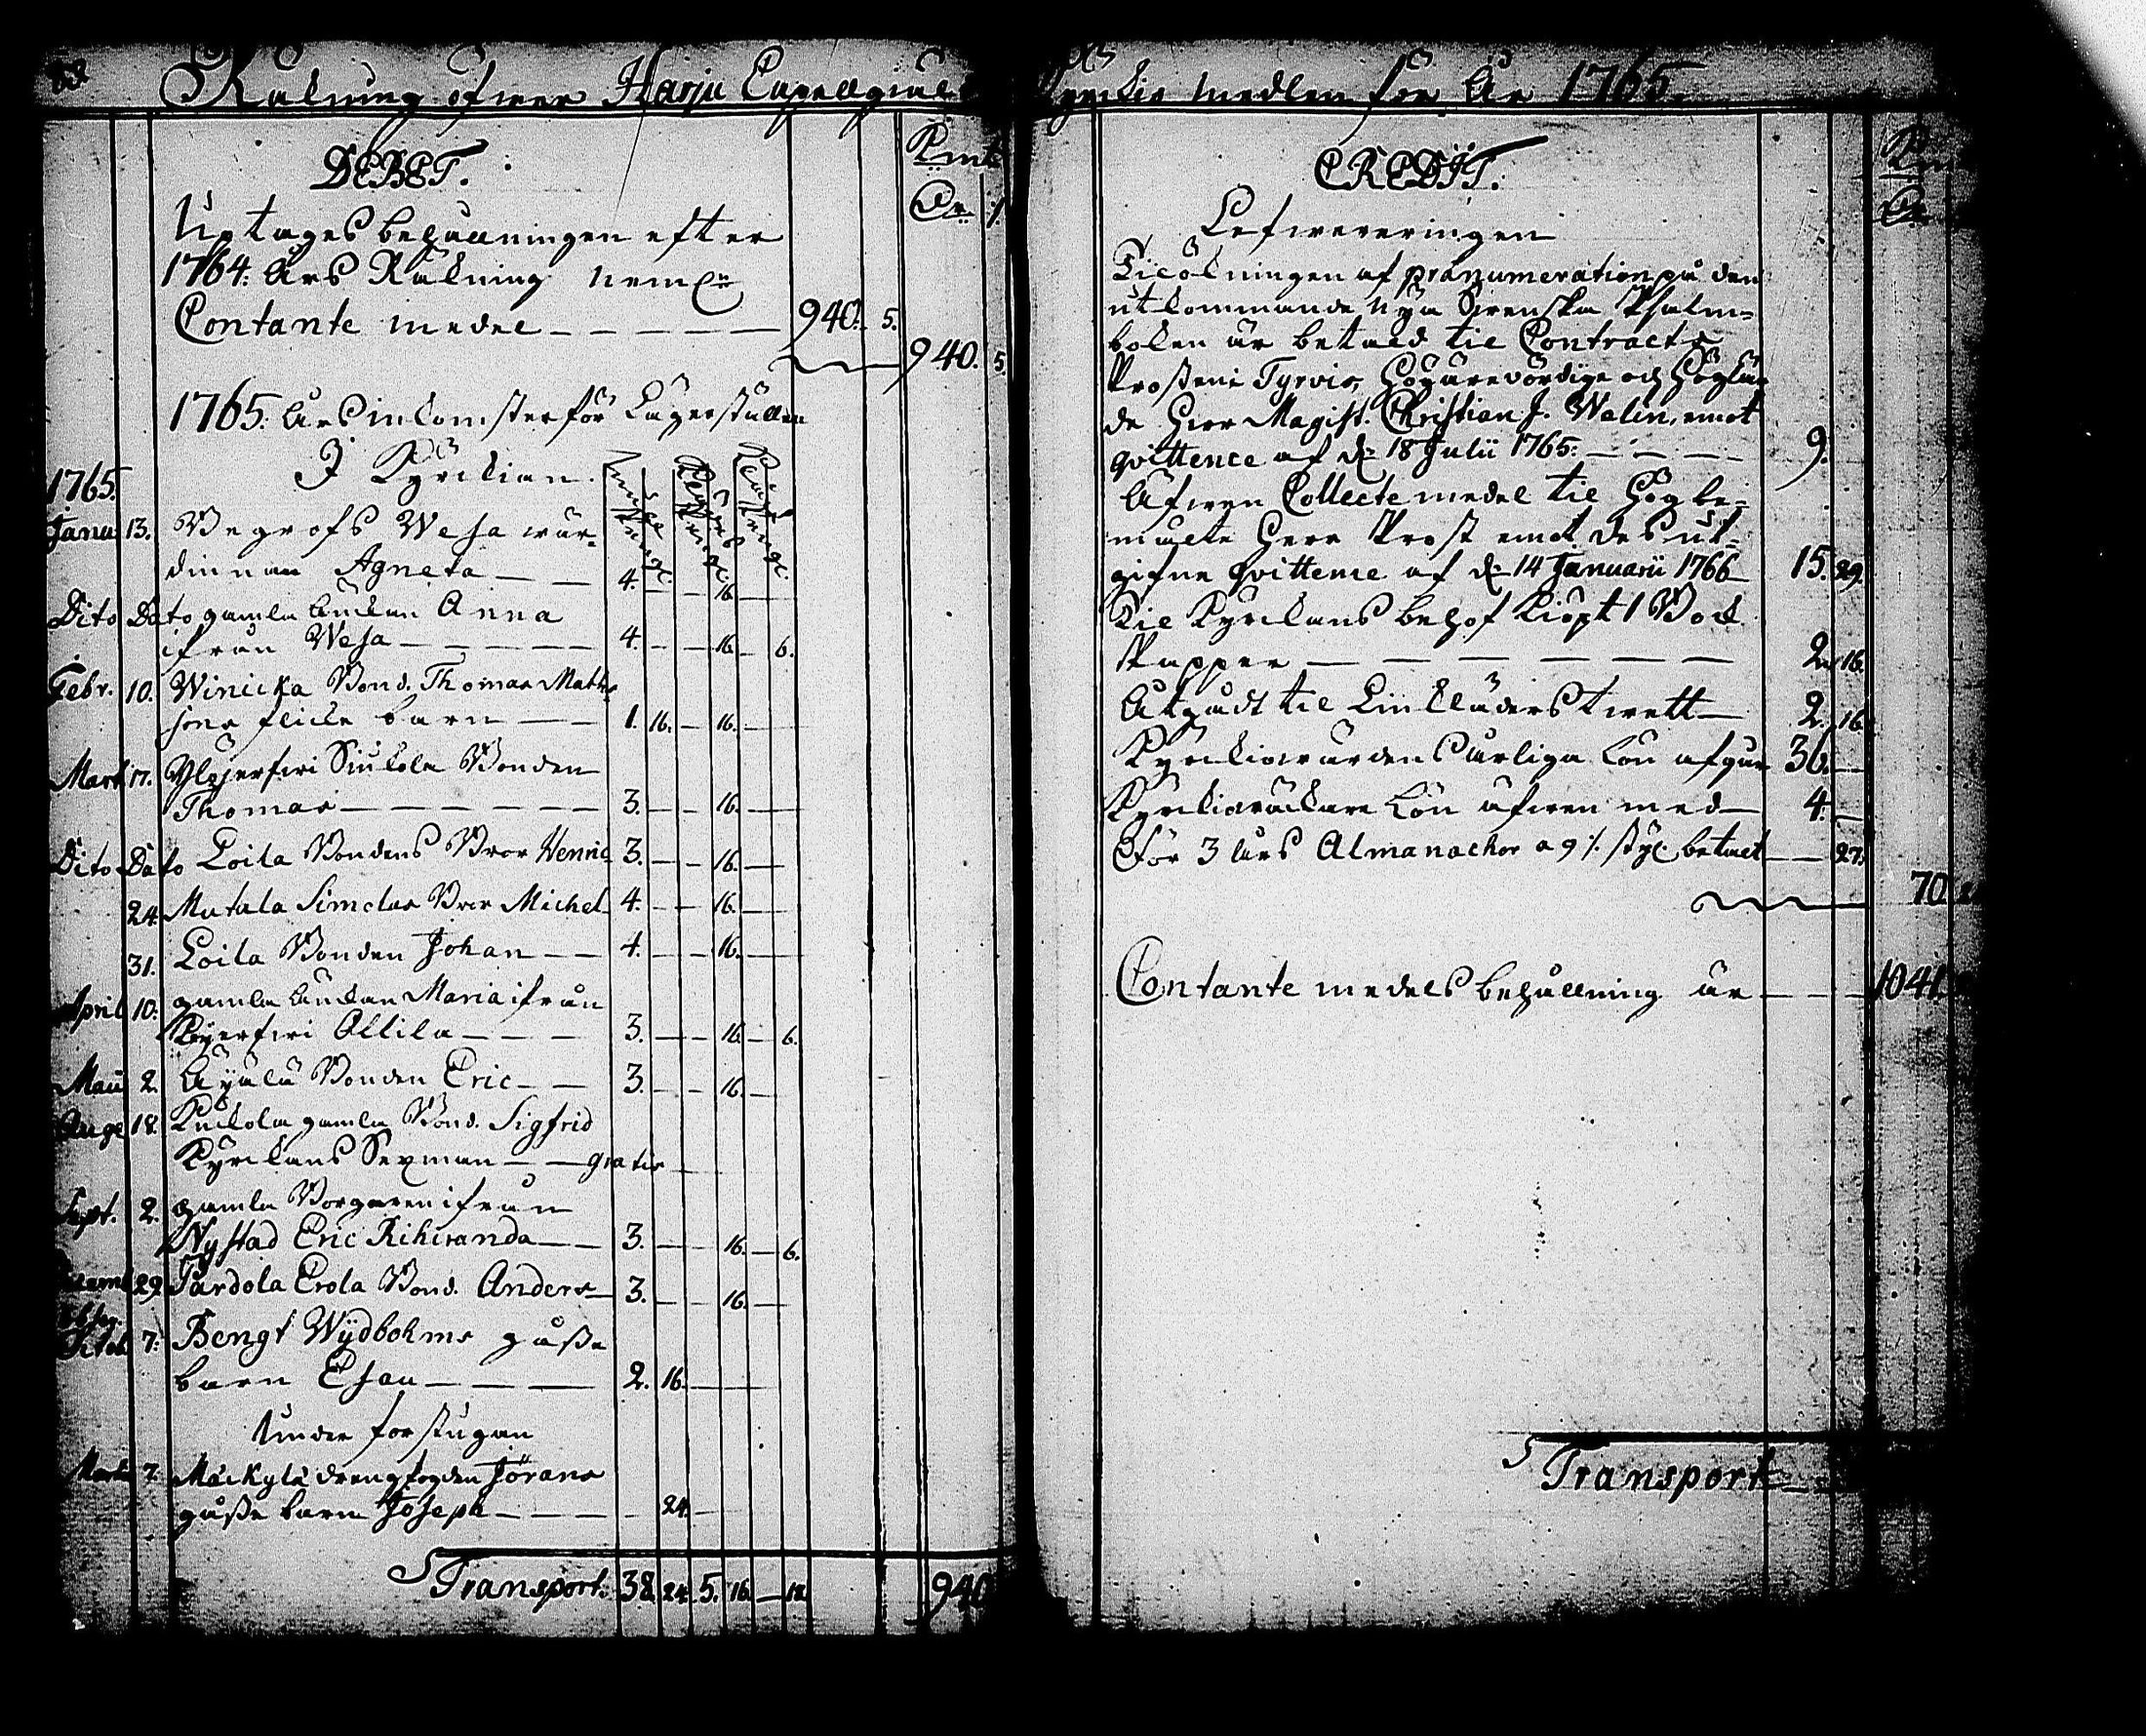 Räkning öfwer Harju Capellgiäl Kyrkio medlen för År 1765.
DEBET.
Uptages behållningen efter
1764: Års Räkning neml:n
Contante medel — — — — — 940. 5.
940. 5.
1765. Års inkomster för Lägerställen
I Kyrkian.
1765.
Janu: 13. Begrofs Wesa wär-
dinnan Agneta — — 4. — — 16. —
Dito Dato gamla Änkan Anna
ifrån Wesa — — — — 4. — — 16. — 6.
Febr. 10. Winicka Bond. Thomas Matts
sons flicke barn — — 1. 16. — 16. —
Mart 17. Yläjerfwi Siukola Bonden
Thomas — — — — — — 3. — — 16. —
Dito Dato Loila Bondens Bror Henric 3. — — 16. —
24. Matala Simolas Bror Michel 4. — — 16. —
31. Loila Bonden Johan — — 4. — — 16. —
April 10. gamla Änkan Maria ifrån
Pyerfwi Ollila — — — 3. — — 16. — 6.
Maii 2. Äyälä Bonden Eric — — 3. — — 16. —
Aug. 18. Kuckola gamla Bond. Sigfrid
Kyrckans Sexman — — gratis —
Sept. 2. gamla Borgaren ifrån
Nystad Eric Rihiranda — — 3. — — 16. — 6.
29. Pardola Erola Bond. Anders — 3. — — 16. —
7. Bengt Wydbohms gåsse
barn Esau — — — 2. 16. — —
Under förstugan
7. Mäckylä drengfogden Jörans
gåsse barn Joseph — — — — 24. —
Transport. 38. 24. 5. 16. — 18. 940
CREDIT.
Lefwereringen
Tilökningen af pränumeration på den
utkommande nya Swenska Psalm-
boken är betald til Contracts
Prosten i Tyrvis, Högärevördige och Höglär
de Herr Magist. Christian J. Walin, emot
qvittence af d: 18 Julii 1765. — — — 9.
Äfwen Collecte medel til Högbe-
mälte Herr Prost emot des ut-
gifne qvittence af d: 14 Januarii 1766 15. 29.
Til Kyrckans behof kiöpt 1 Bok
skapper — — — — — — 2. 16.
Åtgådt til Linkläders twett — 2. 16.
Kyrkiowärdens årliga lön afgår 36. —
Kyrkioväckare lön äfwen med — 4. —
För 3 års Almanachor a 9 /. styc betalt — — 27.
70.
Contante medels behållning är — — — 1041.
Transport